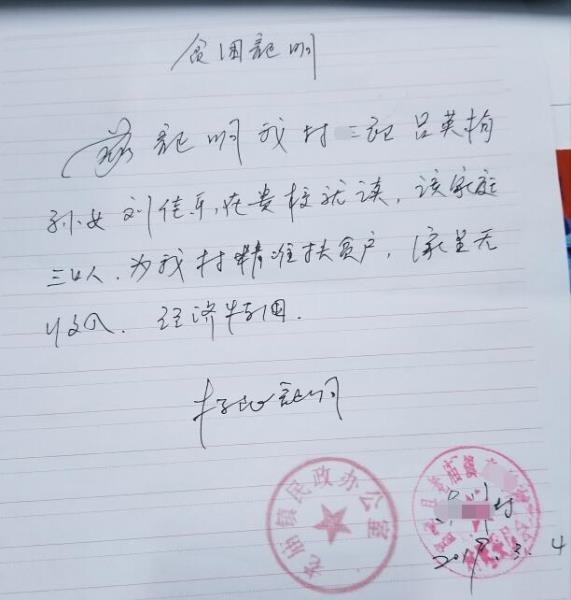 贫困证明
兹证明我村三组吕英梅
孙女刘佳乐,在贵校就读,该家庭
三口人.为我村精准扶贫户,家里无
收入.经济特困.
特此证明
庙镇民政办公室
庙镇
村
2019.3.4